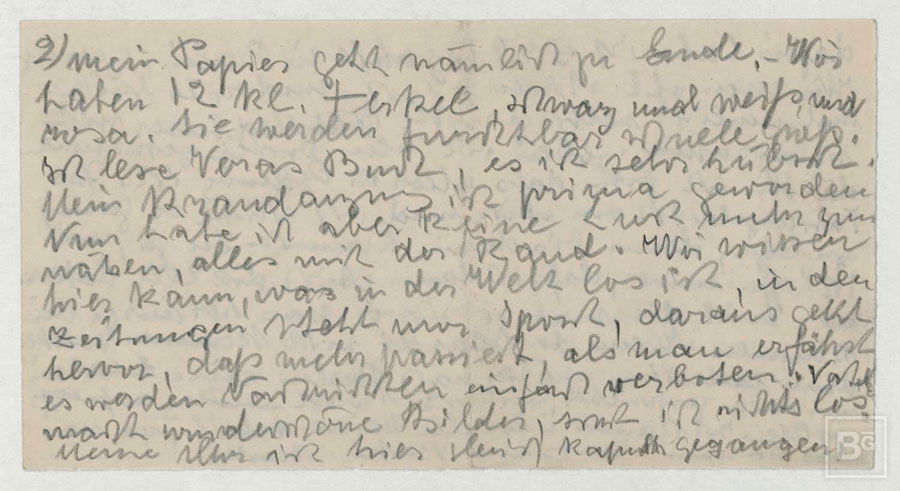 2) mein Papier geht nämlich zu Ende. – Wir
haben 12 kl. Ferkel, schwarz und weiß und
rosa. Sie werden furchtbar schnell groß.
Ich lese Veras Buch, es ist sehr hübsch.
Mein Strandanzug ist prima geworden
Nun habe ich aber keine Lust mehr zum
nähen, alles mit der Hand. Wir wissen
hier kaum, was in der Welt los ist, in den
Zeitungen steht nur Sport, daraus geht
hervor, daß mehr passiert, als man erfährt
es werden Nachrichten einfach verboten. Vater
macht wunderschöne Bilder, sonst ist nichts los
Meine Uhr ist hier gleich kaputt gegangen,
BG